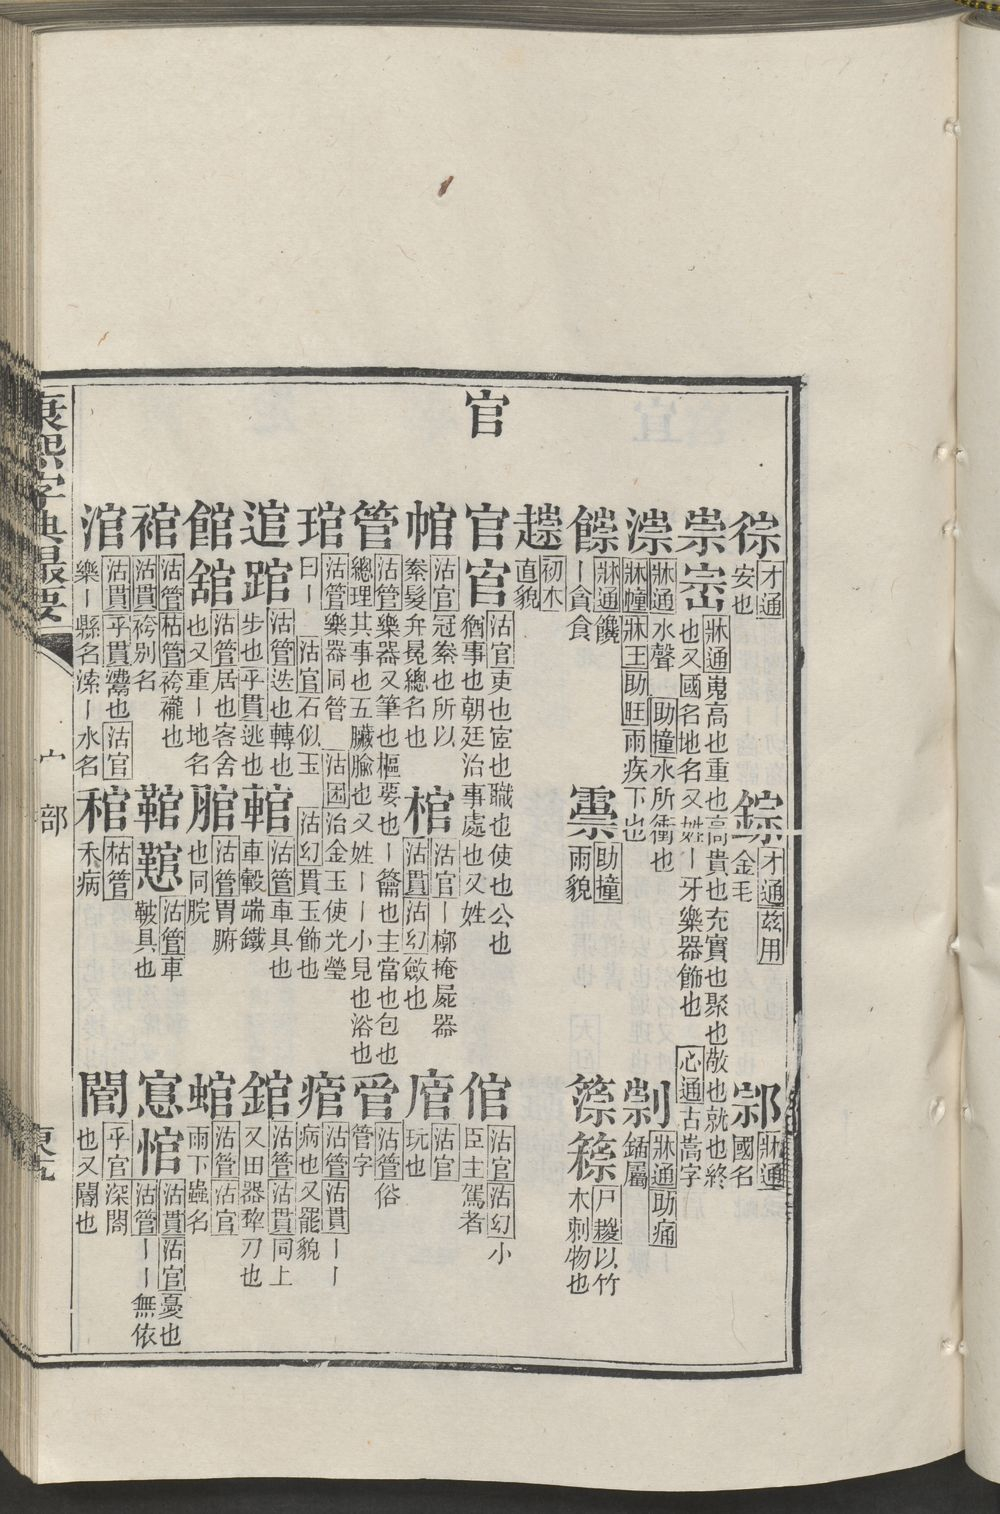 徖 才通 安也
錝 才通 兹用 金毛
𨛱 牀通 國名
崇崈 牀通嵬高也重也高貴也充實也聚也敵也就也終也又國名地名又姓丨牙樂器飾也 心通古嵩字
漴 牀通水聲 助撞水所衝也 牀幢 牀王 助旺雨疾下也
剶 牀通 助痛 鍤屬
䭥 牀通饞丨貪食
䨥 助撞 雨貌
䈡 尸糉以竹木刺物也
趯 初木 直貌
官
官𡧱 沽官吏也宦也職也使也公也猶事也朝廷治事處也又姓
倌 沽官 沽幻 小臣主駕者
帵 沽官冠絭也所以絭髮弁冕總名也
棺 沽官丨槨掩屍器 沽貫 沽幻斂也
㾪 沽官 玩也
管 沽管樂器又筆也樞要也丨籥也主當也包也總理其事也五臟腧也又姓丨丨小見也浴也
𦝫 沽管俗管字
琯 沽管樂器同管 沽困治金玉使光瑩曰丨 沽官石似玉 沽幻貫玉飾也
痯 沽管 沽貫丨丨病也又罷貌
逭䠉 沽管迭也轉也步也 乎貫逃也
輨 沽管車具也車轂端鐵
錧 沽管 沽貫同上又田器犂刀也
館舘 沽管居也客舍也又重丨地名
脘 沽管胃腑也同脘
蜭 沽管 沽官 雨下蟲名
䘾 沽管 枯管袴襱也 沽貫袴别名
鞼 沽管車鞁具也
悹悺 沽貫 沽官憂也 沽管丨丨無依
涫 沽貫 乎貫灊也 沽官樂丨縣名溹丨水名
䅧 枯管 禾病
䦎 乎官深閤也又闇也
康熙字典最要
宀部
東五